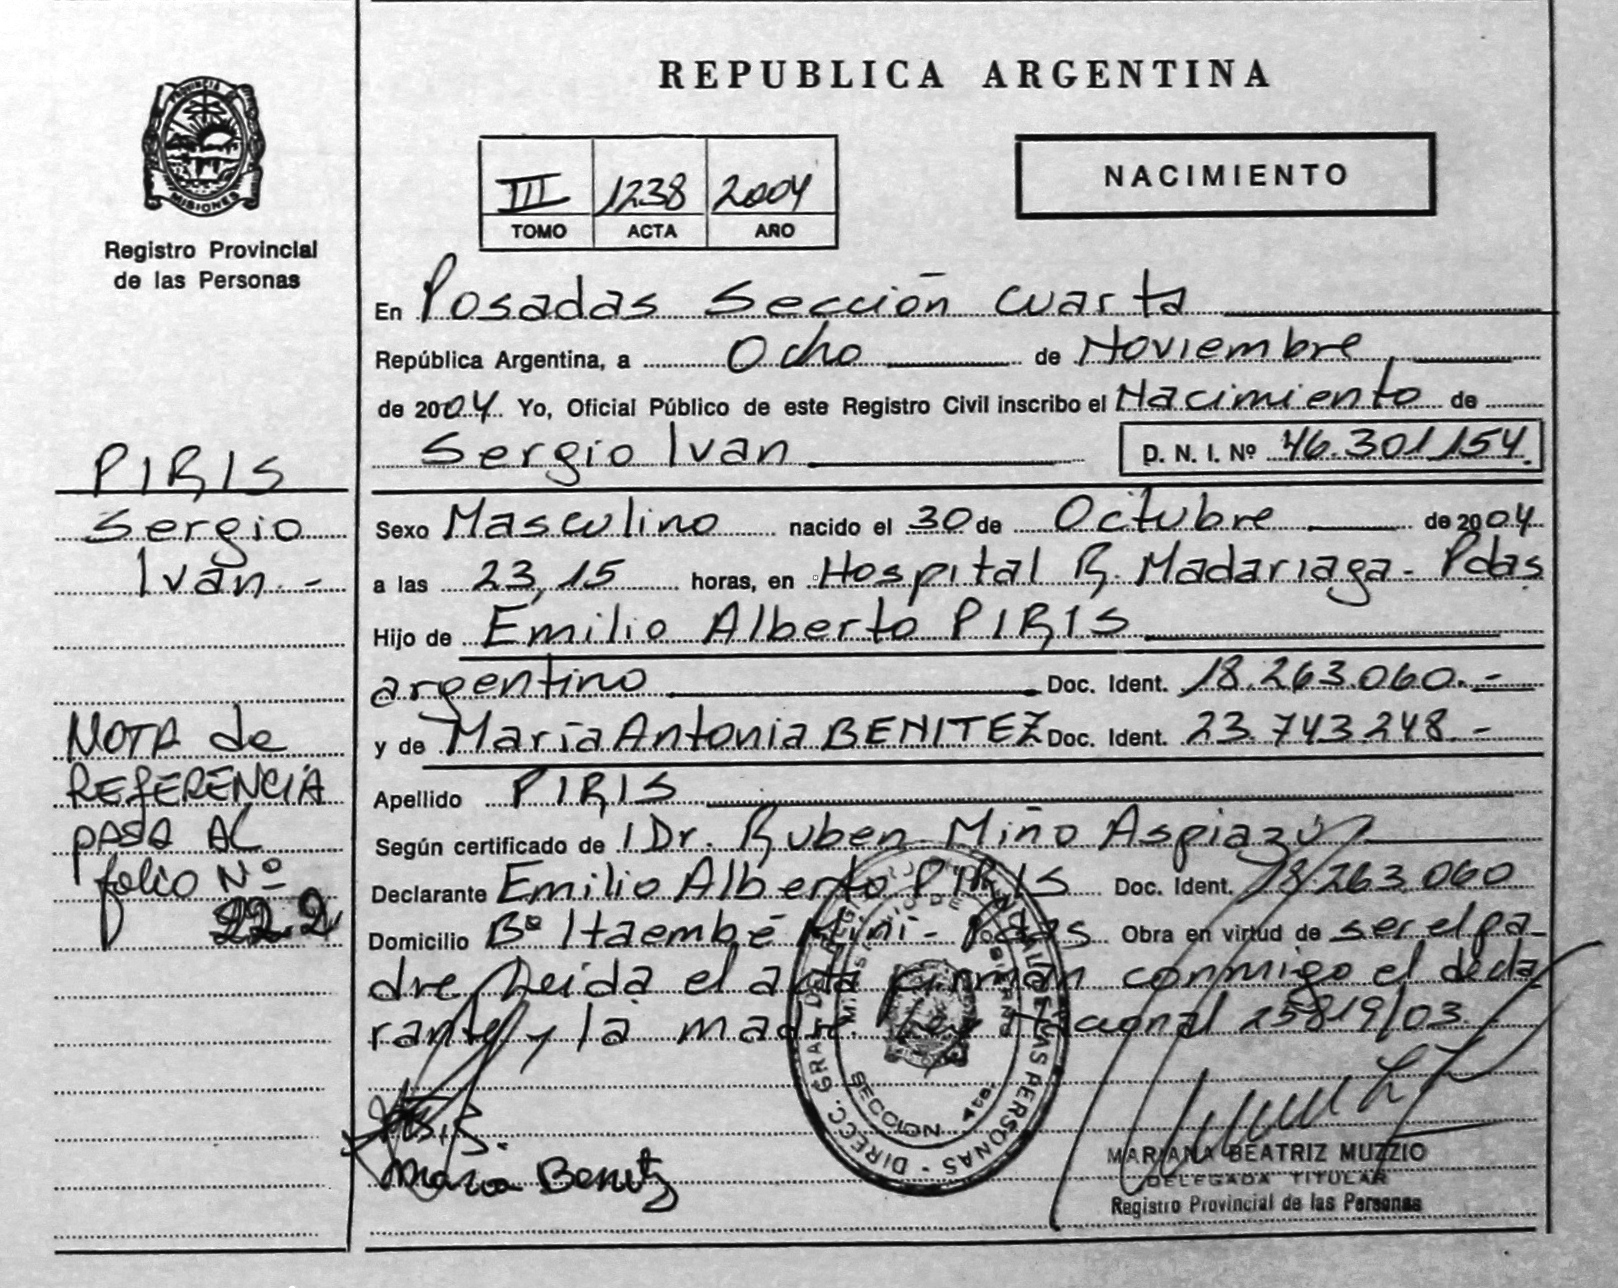 PROVINCIA DE
MISIONES
Registro Provincial
de las Personas
PIRIS
Sergio
Ivan.-
NOTA de
REFERENCIA
PASA AL
folio Nº
222
REPUBLICA ARGENTINA
III 1238 2004
TOMO ACTA AÑO
NACIMIENTO
En Posadas Sección Cuarta
República Argentina, a Ocho de Noviembre
de 2004 Yo, Oficial Público de este Registro Civil inscribo el Nacimiento de
Sergio Ivan D. N. I. Nº 46.301.154.
Sexo Masculino nacido el 30 de Octubre de 2004
a las 23,15 horas, en Hospital R. Madariaga - Pdas
Hijo de Emilio Alberto PIRIS
argentino Doc. Ident. 18.263.060.-
y de María Antonia BENITEZ Doc. Ident. 23.743.248.-
Apellido PIRIS
Según certificado de l Dr. Ruben Miño Aspiazú
Declarante Emilio Alberto PIRIS Doc. Ident. 18263060
Domicilio Bº Itaembé Miní - Pdas Obra en virtud de ser el pa-
dre, Leida el acta firman conmigo el decla
rante y la madre Ley Nacional 25819/03
DIRECC. GRAL DE PERSONAS
SECCION 4ta.
Maria Benitz
MARIANA BEATRIZ MUZZIO
DELEGADA TITULAR
Registro Provincial de las Personas